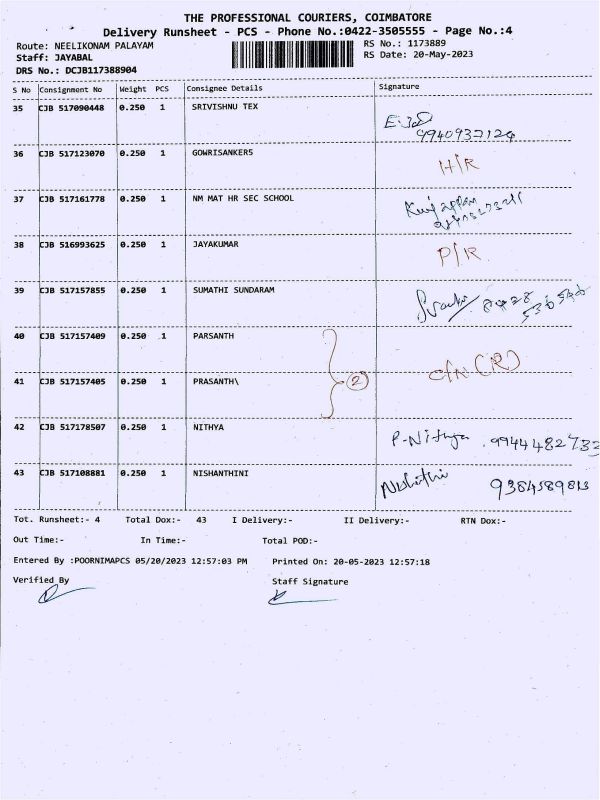 THE PROFESSIONAL COURIERS, COIMBATORE
Delivery Runsheet - PCS - Phone No.:0422-3505555 - Page No.:4
Route: NEELIKONAM PALAYAM RS No.: 1173889
Staff: JAYABAL RS Date: 20-May-2023
DRS No.: DCJB117388904
S No Consignment No Weight PCS Consignee Details Signature
35 CJB 517090448 0.250 1 SRIVISHNU TEX
9940937124
36 CJB 517123070 0.250 1 GOWRISANKER5 H/R
37 CJB 517161778 0.250 1 NM MAT HR SEC SCHOOL
38 CJB 516993625 0.250 1 JAYAKUMAR P/R
39 CJB 517157855 0.250 1 SUMATHI SUNDARAM
40 CJB 517157409 0.250 1 PARSANTH
2 C/N (R)
41 CJB 517157405 0.250 1 PRASANTH\
42 CJB 517178507 0.250 1 NITHYA P-Nithya 9944482733
43 CJB 517108881 0.250 1 NISHANTHINI
Tot. Runsheet:- 4 Total Dox:- 43 I Delivery:- II Delivery:- RTN Dox:-
Out Time:- In Time:- Total POD:-
Entered By :POORNIMAPCS 05/20/2023 12:57:03 PM Printed On: 20-05-2023 12:57:18
Verified By Staff Signature